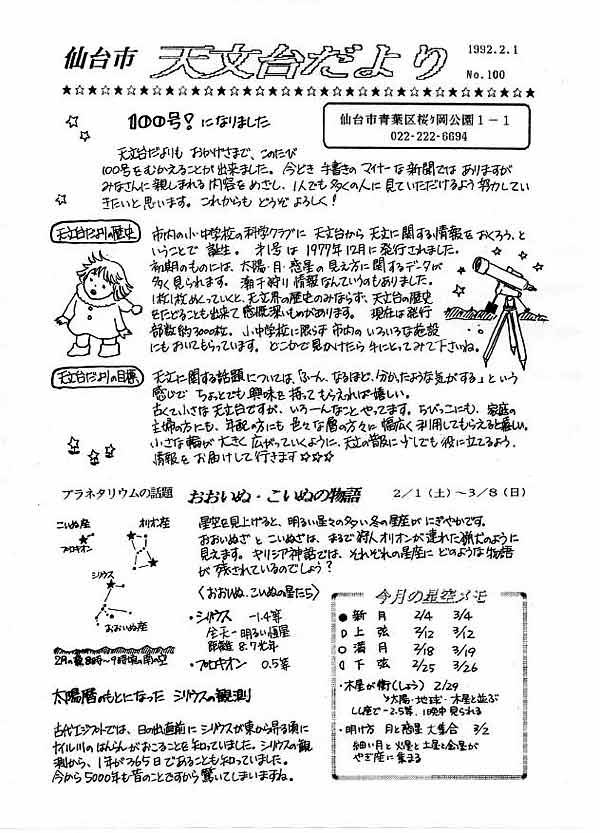 仙台市 天文台だより 1992.2.1
No.100
100号! になりました
仙台市青葉区桜ヶ岡公園1-1
022-222-6694
天文台だよりも おかげさまで、このたび
100号をむかえることが出来ました。今どき 手書きの マイナーな新聞では ありますが
みなさんに親しまれる内容をめざし、1人でも多くの人に見ていただけるよう努力してい
きたいと思います。これからも どうぞ よろしく!
天文台だよりの歴史
市内の小・中学校の科学クラブに 天文台から 天文に関する情報をおくろう、と
いうことで 誕生。 オ1号は 1977年12月に発行されました。
初期のものには、太陽・月・惑星の見え方に関するデータが
多く見られます。潮干狩り情報なんていうのもありました。
1枚1枚めくっていくと、天文界の歴史のみならず、天文台の歴史
をたどることも出来て感慨深いものがあります。 現在は発行
部数約3000枚。小中学校に限らず市内のいろいろな施設
にもおいてもらっています。どこかで見かけたら手にとってみて下さいね。
天文台だよりの目標
天文に関する話題については、「ふーん、なるほど、分かったような気がする」という
感じで ちょっとでも興味を持ってもらえれば嬉しい。
古くて小さな天文台ですが、いろーんなことやってます。ちびっこにも、家庭の
主婦の方にも、年配の方にも 色々な層の方々に 幅広く利用してもらえると嬉しい。
小さな輪が 大きく広がっていくように、天文の普及に少しでも役に立てるよう、
情報をお届けして行きます☆☆☆
プラネタリウムの話題 おおいぬ・こいぬの物語 2/1(土)～3/8(日)
こいぬ座
オリオン座
プロキオン
シリウス
おおいぬ座
2月の夜8時～9時頃の南の空
星空を見上げると、明るい星々の多い冬の星座が にぎやかです。
おおいぬざと こいぬざは、まるで狩人オリオンが連れた猟犬のように
見えます。ギリシア神話では、それぞれの星座に どのような物語
が残されているのでしょう?
〈おおいぬ、こいぬの星たち〉
・シリウス -1.4等
全天一明るい恒星
距離 8.7光年
・プロキオン 0.5等
太陽暦のもとになった シリウスの観測
古代エジプトでは、日の出直前に シリウスが東から昇る頃に
ナイル川の はんらんがおこることを知っていました。シリウスの観
測から、1年が365日であることも知っていました。
今から5000年も昔のことですから驚いてしまいますね。
今月の星空メモ
● 新 月 2/4 3/4
上 弦 2/12 3/12
○ 満 月 2/18 3/19
下 弦 2/25 3/26
・木星が衝(しょう) 2/29
太陽・地球・木星と並ぶ
しし座で-2.5等、1晩中見られる
・明け方 月と惑星大集合 3/2
細い月と火星と土星と金星が
やぎ座に集まる